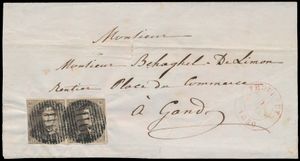 Monsieur
Monsieur Behaghel-De Limon
Rentier Place du Commerce
à Gand